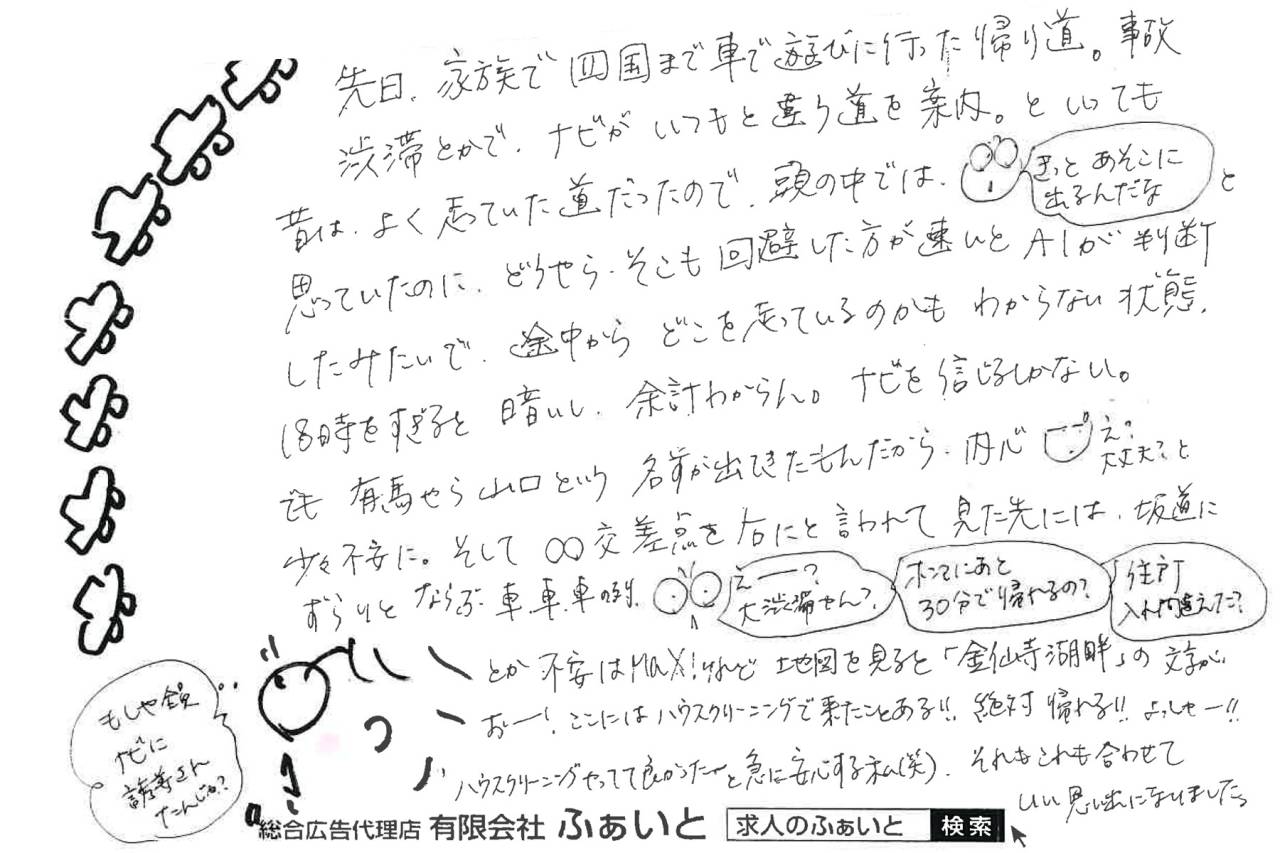 先日、家族で四国まで車で遊びに行った帰り道。事故
渋滞とかで、ナビがいつもと違う道を案内。といっても
昔は、よく走っていた道だったので、頭の中では、
きっとあそこに
出るんだな
と
思っていたのに、どうやら、そこも回避した方が速いとAIが判断
したみたいで、途中からどこを走っているのかもわからない状態。
18時をすぎると暗いし、余計わからん。ナビを信じるしかない。
でも有馬やら山口という名前が出てきたもんだから、内心
え?
大丈夫?と
少々不安に。そして○○交差点を右にと言われて見た先には、坂道に
ずらりとならぶ車、車、車の列。
えーー?
大渋滞やん?
ホンマにあと
30分で帰れるの?
住所
入れ間違えた?
とか不安はMAX!けれど地図を見ると「金仙寺湖畔」の文字が
おー!ここにはハウスクリーニングで来たことある!!絶対帰れる!!よっしゃー!!
ハウスクリーニングやってて良かったーと急に安心する私(笑)。それもこれも合わせて
いい思い出になりました。
もしや全員
ナビに
誘導され
たんじゃ?
総合広告代理店 有限会社 ふぁいと 求人のふぁいと 検索